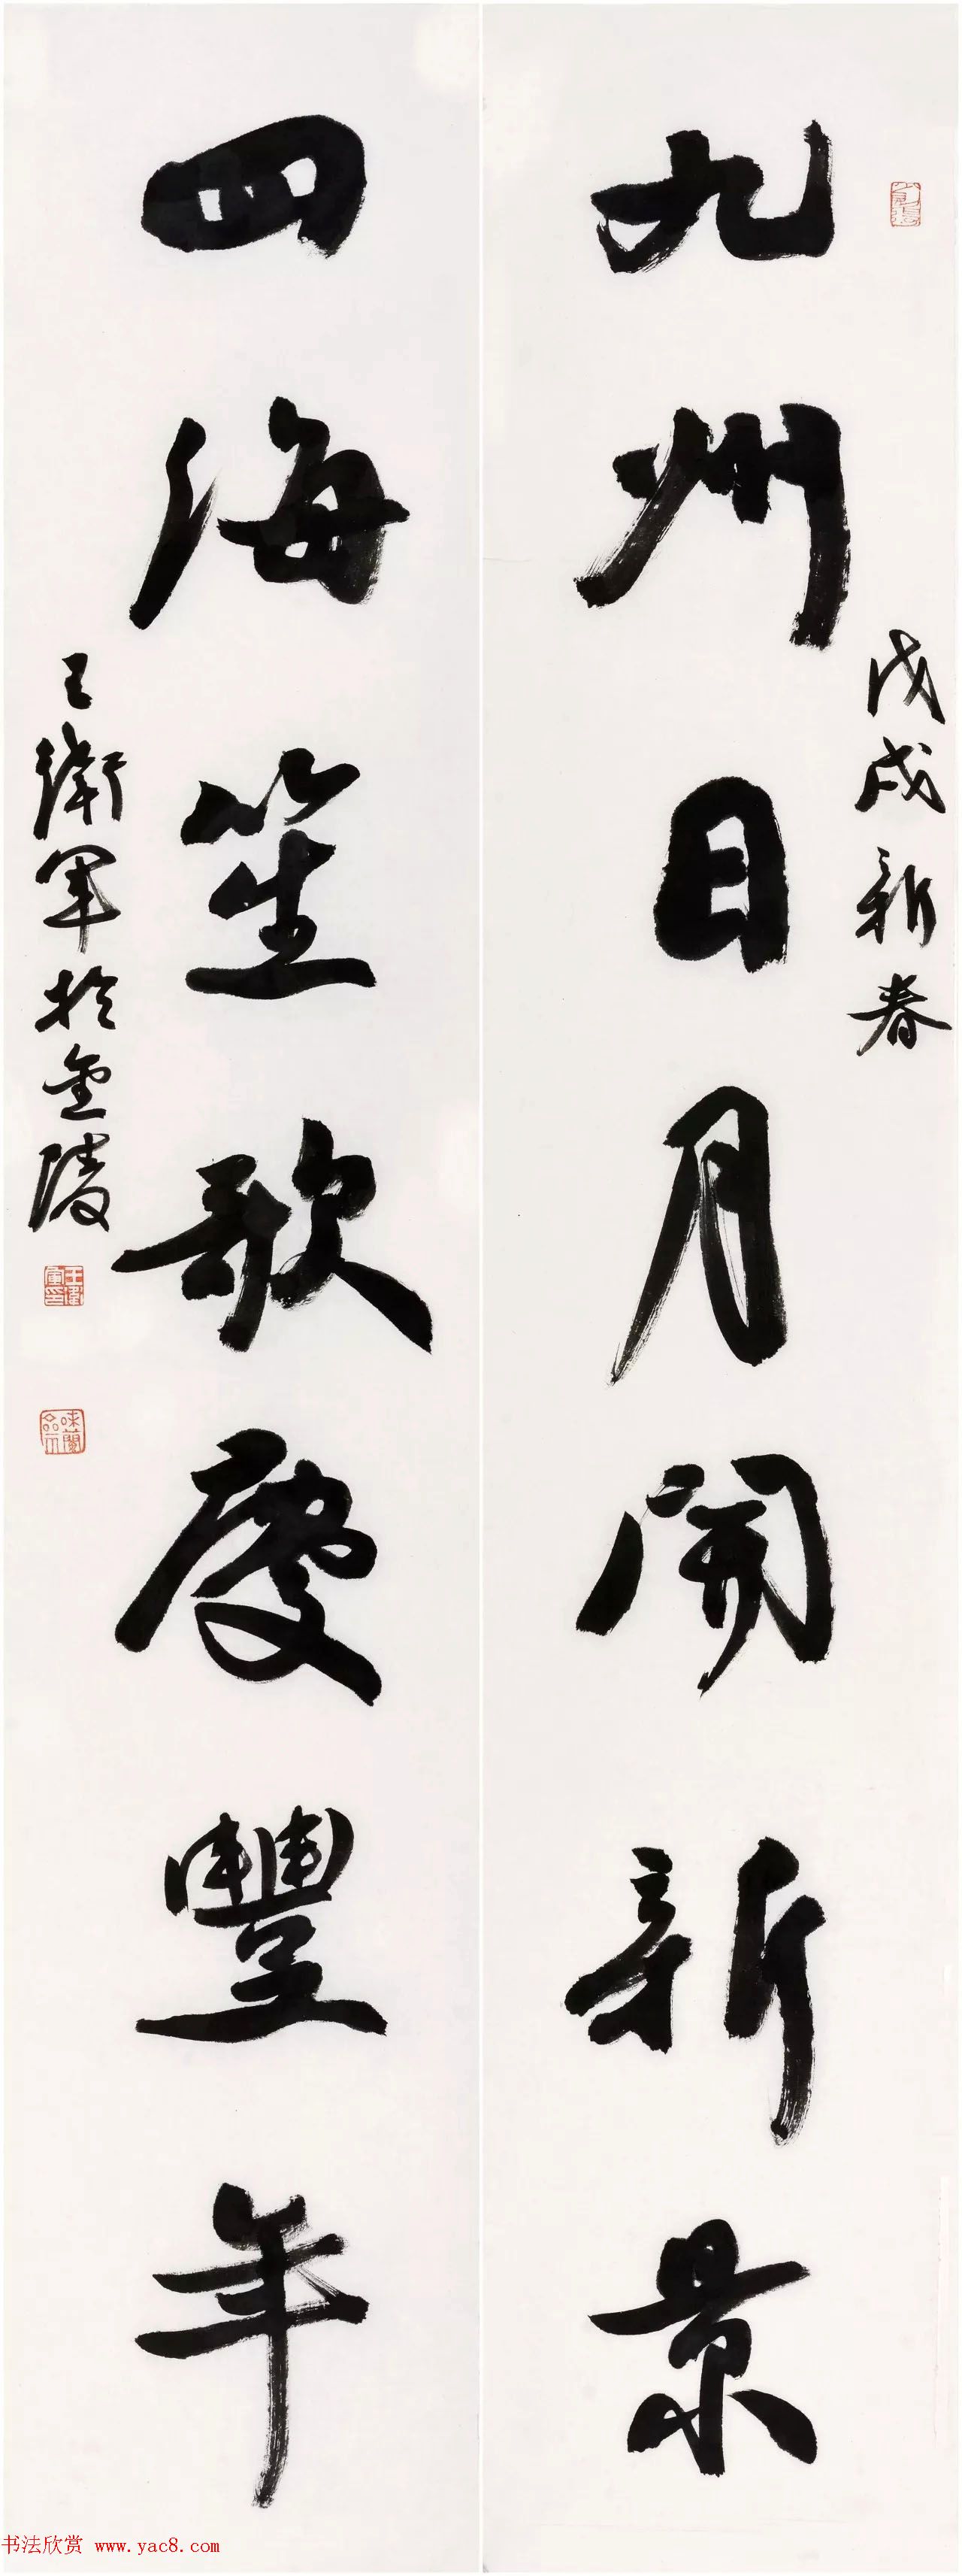 戊戌新春
九州日月開新景
四海笙歌慶豐年
王衛軍於金陵
书法欣赏 www.yac8.com